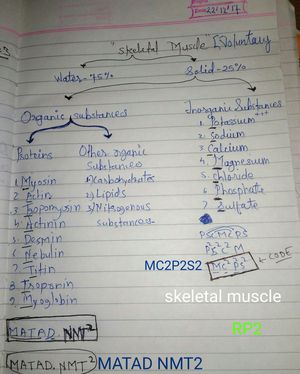 22.12.17
"Skeletal Muscle" [Voluntary
Water-75%
Solid-25%
Organic substances
Inorganic Substances
Proteins
Other organic
Substances
1. Myosin
2. Actin
3. Tropomyosin
4. Actinin
5. Desmin
6. Nebulin
7. Titin
8. Troponin
9. Myoglobin
1) Carbohydrates
2) Lipids
3) Nitrogenous
Substances
1. Potassium +++
2. Sodium
3. Calcium
4. Magnesium
5. chloride
6. Phosphate
7. Sulfate
PSCM C PS
P²S²C² M
MC²P²S² → CODE
MC2P2S2
skeletal muscle
RP2
MATAD. NMT²
(MATAD. NMT²)
MATAD NMT2